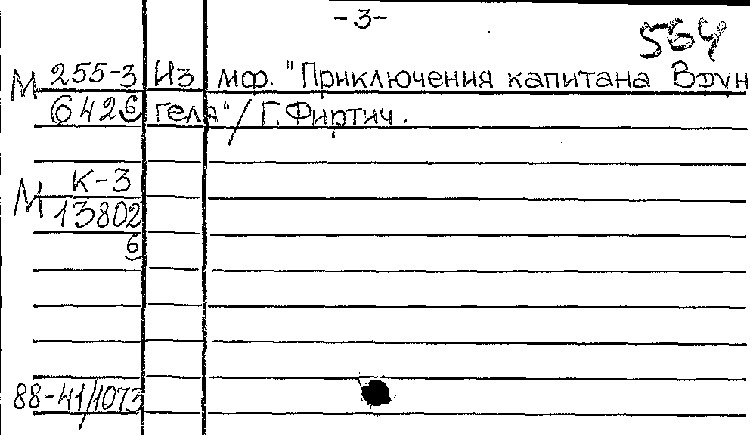 -3-
564
М 255-3 Из мф. "Приключения капитана Врун
642б геля" / Г. Фиртич.
М К-3
13802
б
88-41/1073